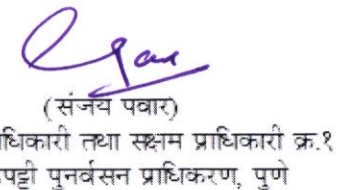 (संजय पवार)
धिकारी तथा सक्षम प्राधिकारी क्र.१
पट्टी पुनर्वसन प्राधिकरण, पुणे